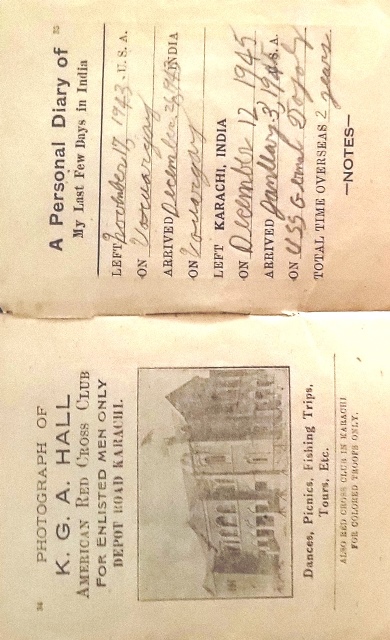 34
PHOTOGRAPH OF
K. G. A. HALL
AMERICAN RED CROSS CLUB
FOR ENLISTED MEN ONLY
DEPOT ROAD KARACHI.
Dances, Picnics, Fishing Trips,
Tours, Etc.
ALSO RED CROSS CLUB IN KARACHI
FOR COLORED TROOPS ONLY.
35
A Personal Diary of
My Last Few Days in India
LEFT 17 1943 U.S.A.
ON
ARRIVED December INDIA
ON
LEFT KARACHI, INDIA
ON December 12 1945
ARRIVED January 3, U.S.A.
ON USS General
TOTAL TIME OVERSEAS 2 years
—NOTES—